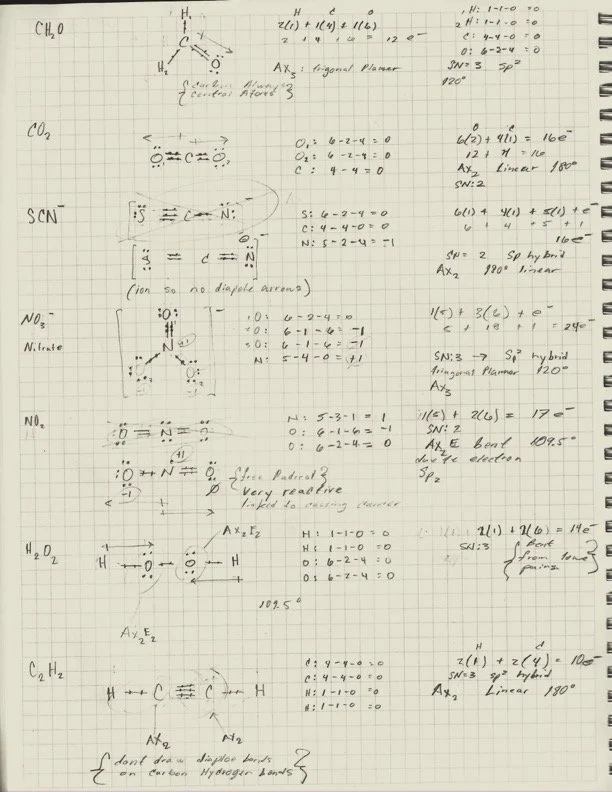 CH2O
H1
C
H2
O
{ carbon Always
Central Atoms }
H C O
2(1) + 1(4) + 1(6)
2 + 4 + 6 = 12 e-
AX3 : trigonal Planer
1 H: 1-1-0 = 0
2 H: 1-1-0 = 0
C: 4-4-0 = 0
O: 6-2-4 = 0
SN=3 Sp2
120°
CO2
O1 C O2
O1: 6-2-4 = 0
O2: 6-2-4 = 0
C: 4-4 = 0
O C
6(2) + 4(1) = 16e-
12 + 4 = 16
AX2 Linear 180°
SN:2
SCN-
[S C N:]-
[S = C N]-
(ion so no diapole arrows)
S: 6-2-4 = 0
C: 4-4-0 = 0
N: 5-2-4 = -1
6(1) + 4(1) + 5(1) + e-
6 + 4 + 5 + 1
16e-
SN = 2 Sp hybrid
AX2 180° linear
NO3-
Nitrate
:O:
N +1
O2 O3
1O: 6-2-4 = 0
2O: 6-1-6 = -1
3O: 6-1-6 = -1
N: 5-4-0 = +1
1(5) + 3(6) + e-
5 + 18 + 1 = 24e-
SN:3 → Sp2 hybrid
triagonal Planner 120°
AX3
NO2
O = N = O
+1
:O N = O
-1
{free Radical}
Very reactive
linked to causing cancer
N: 5-3-1 = 1
O: 6-1-6 = -1
O: 6-2-4 = 0
1(5) + 2(6) = 17 e-
SN:2
AX2E bent 109.5°
due to electron
Sp2
H2O2
H O O H
AX2E2
AX2E2
H: 1-1-0 = 0
H: 1-1-0 = 0
O: 6-2-4 = 0
O: 6-2-4 = 0
109.5°
2(1) + 2(6) = 14e-
SN:3
{ Bent
from lone
pairing }
C2H2
H C ≡ C H
AX2 AX2
{ dont draw diaploe bonds
on Carbon Hydrogen bonds }
C: 4-4-0 = 0
C: 4-4-0 = 0
H: 1-1-0 = 0
H: 1-1-0 = 0
H C
2(1) + 2(4) = 10e-
SN=3 sp2 hybrid
AX2 Linear 180°